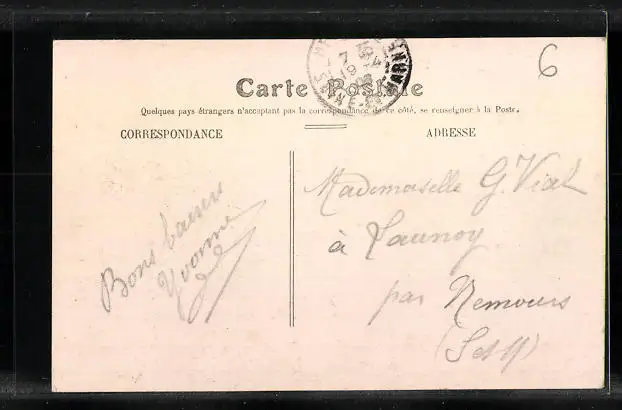 6
Carte Postale
Quelques pays étrangers n'acceptant pas la correspondance de ce côté, se renseigner à la Poste.
CORRESPONDANCE
ADRESSE
Bons baisers
Yvonne
Mademoiselle G. Vial
à Launoy
par Nemours
(S et M)